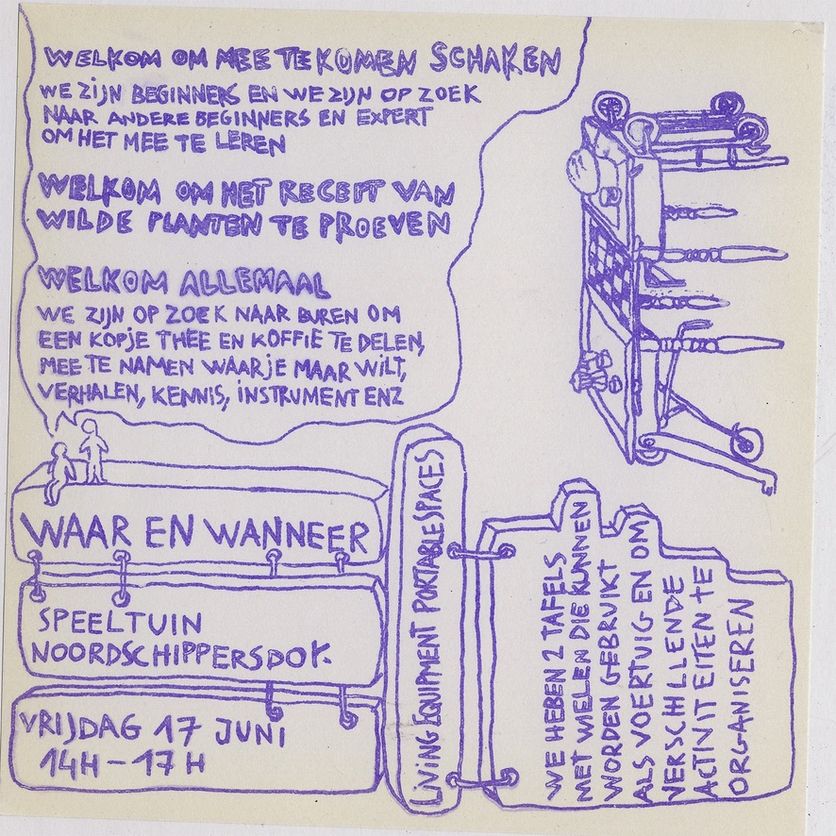 WELKOM OM MEE TE KOMEN SCHAKEN
WE ZIJN BEGINNERS EN WE ZIJN OP ZOEK
NAAR ANDERE BEGINNERS EN EXPERT
OM HET MEE TE LEREN
WELKOM OM HET RECEPT VAN
WILDE PLANTEN TE PROEVEN
WELKOM ALLEMAAL
WE ZIJN OP ZOEK NAAR BUREN OM
EEN KOPJE THEE EN KOFFIE TE DELEN,
MEE TE NAMEN WAAR JE MAAR WILT,
VERHALEN, KENNIS, INSTRUMENT ENZ
WAAR EN WANNEER
SPEELTUIN
NOORDSCHIPPERSDOK.
VRIJDAG 17 JUNI
14H - 17H
LIVING EQUIPMENT PORTABLE SPACES
WE HEBEN 2 TAFELS
MET WIELEN DIE KUNNEN
WORDEN GEBRUIKT
ALS VOERTUIG EN OM
VERSCHILLENDE
ACTIVITEITEN TE
ORGANISEREN